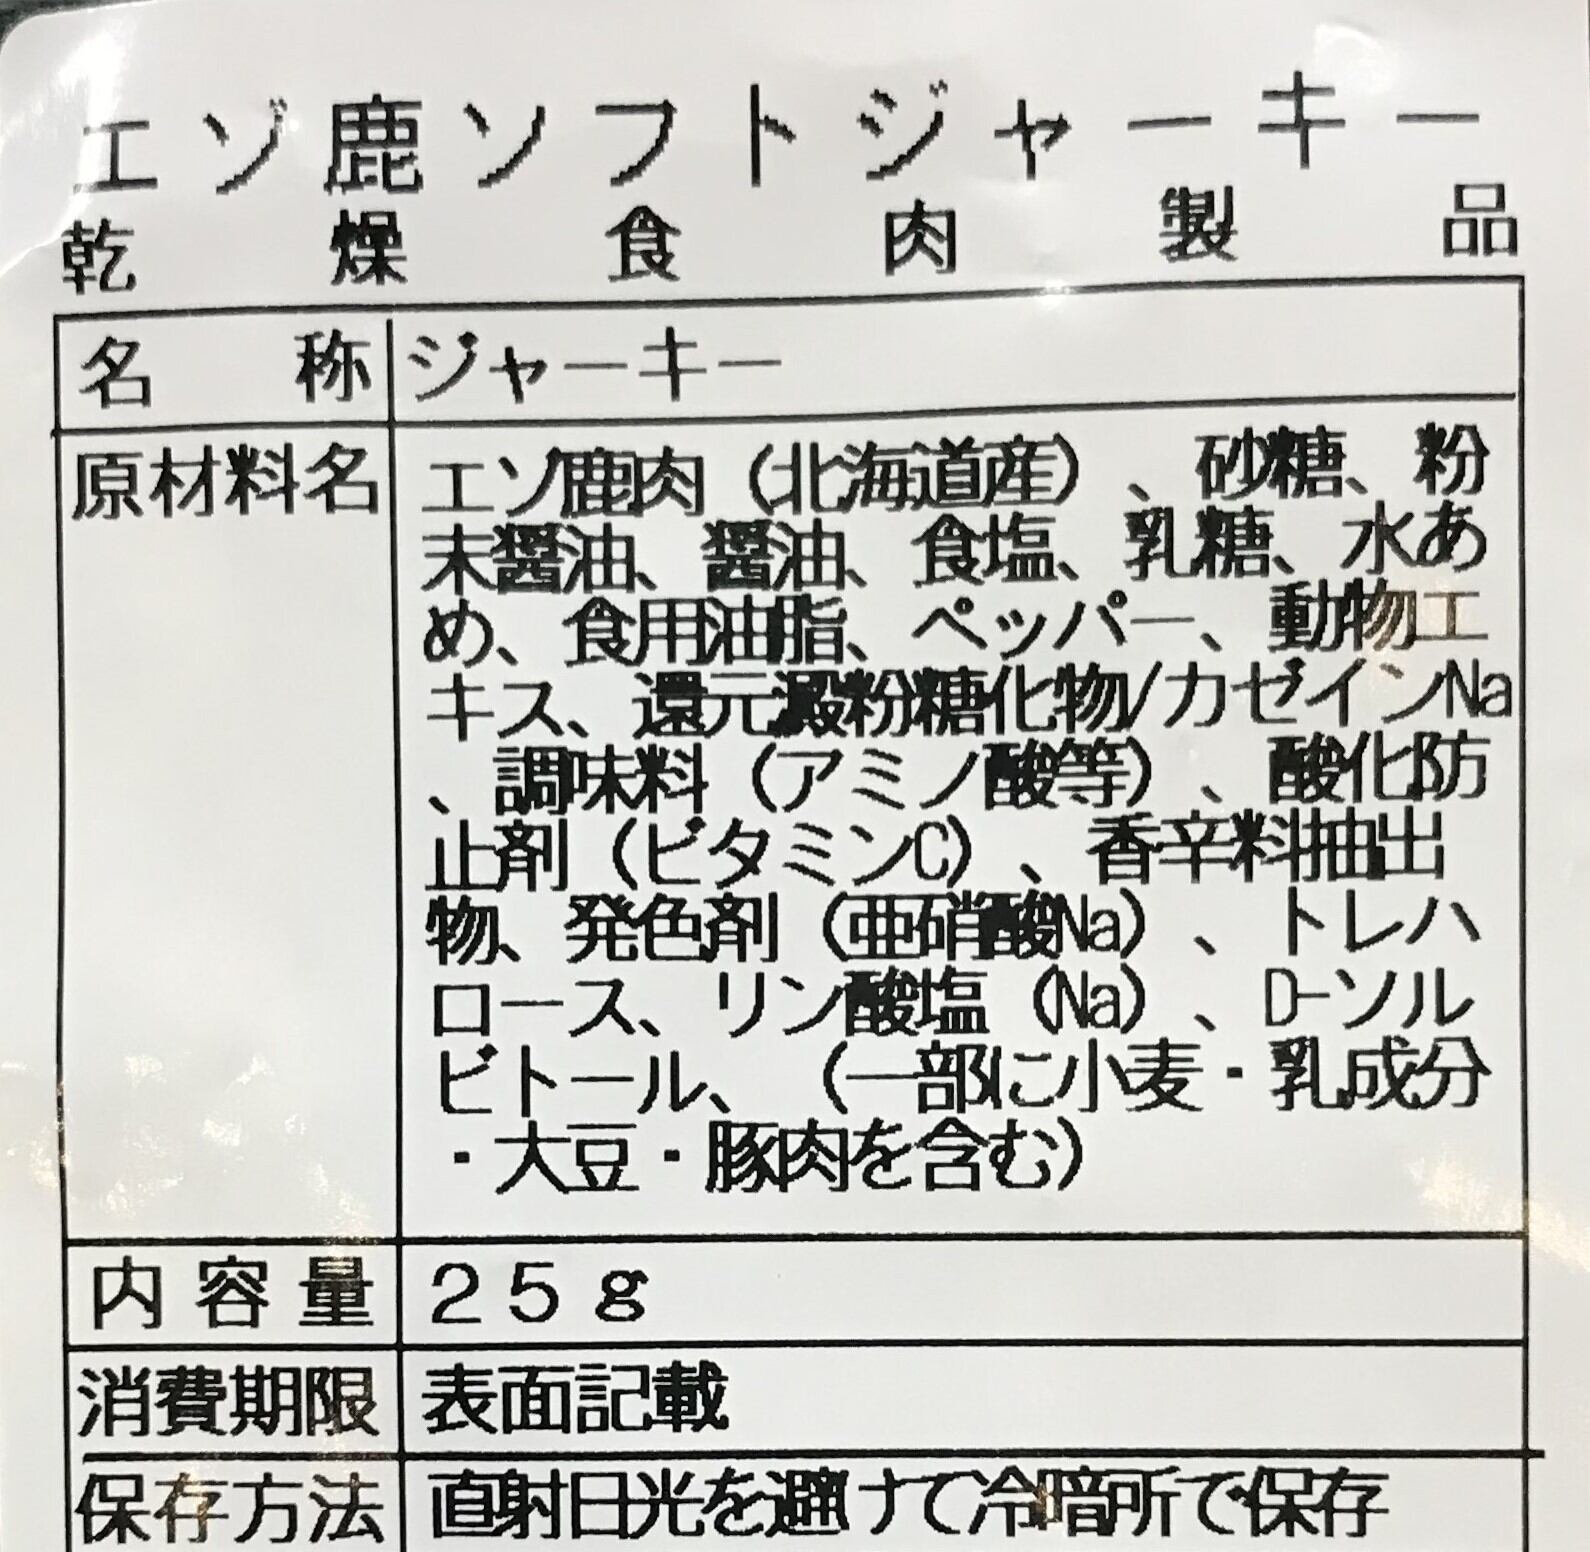 エゾ鹿ソフトジャーキー
乾燥食肉製品
名称 ジャーキー
原材料名 エゾ鹿肉（北海道産）、砂糖、粉
末醤油、醤油、食塩、乳糖、水あ
め、食用油脂、ペッパー、動物エ
キス、還元澱粉糖化物/カゼインNa
、調味料（アミノ酸等）、酸化防
止剤（ビタミンC）、香辛料抽出
物、発色剤（亜硝酸Na）、トレハ
ロース、リン酸塩（Na）、D-ソル
ビトール、（一部に小麦・乳成分
・大豆・豚肉を含む）
内容量 25g
消費期限 表面記載
保存方法 直射日光を避けて冷暗所で保存